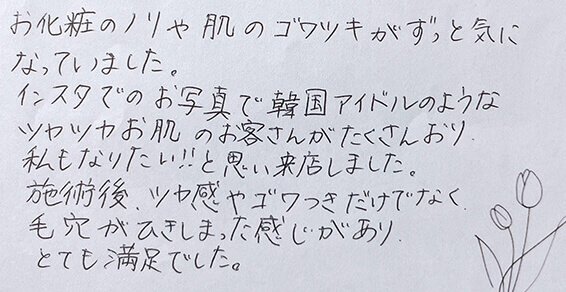 お化粧のノリや肌のゴワツキがずっと気に
なっていました。
インスタでのお写真で韓国アイドルのような
ツヤツヤお肌のお客さんがたくさんおり
私もなりたい!!と思い来店しました。
施術後、ツヤ感やゴワつきだけでなく
毛穴がひきしまった感じがあり、
とても満足でした。